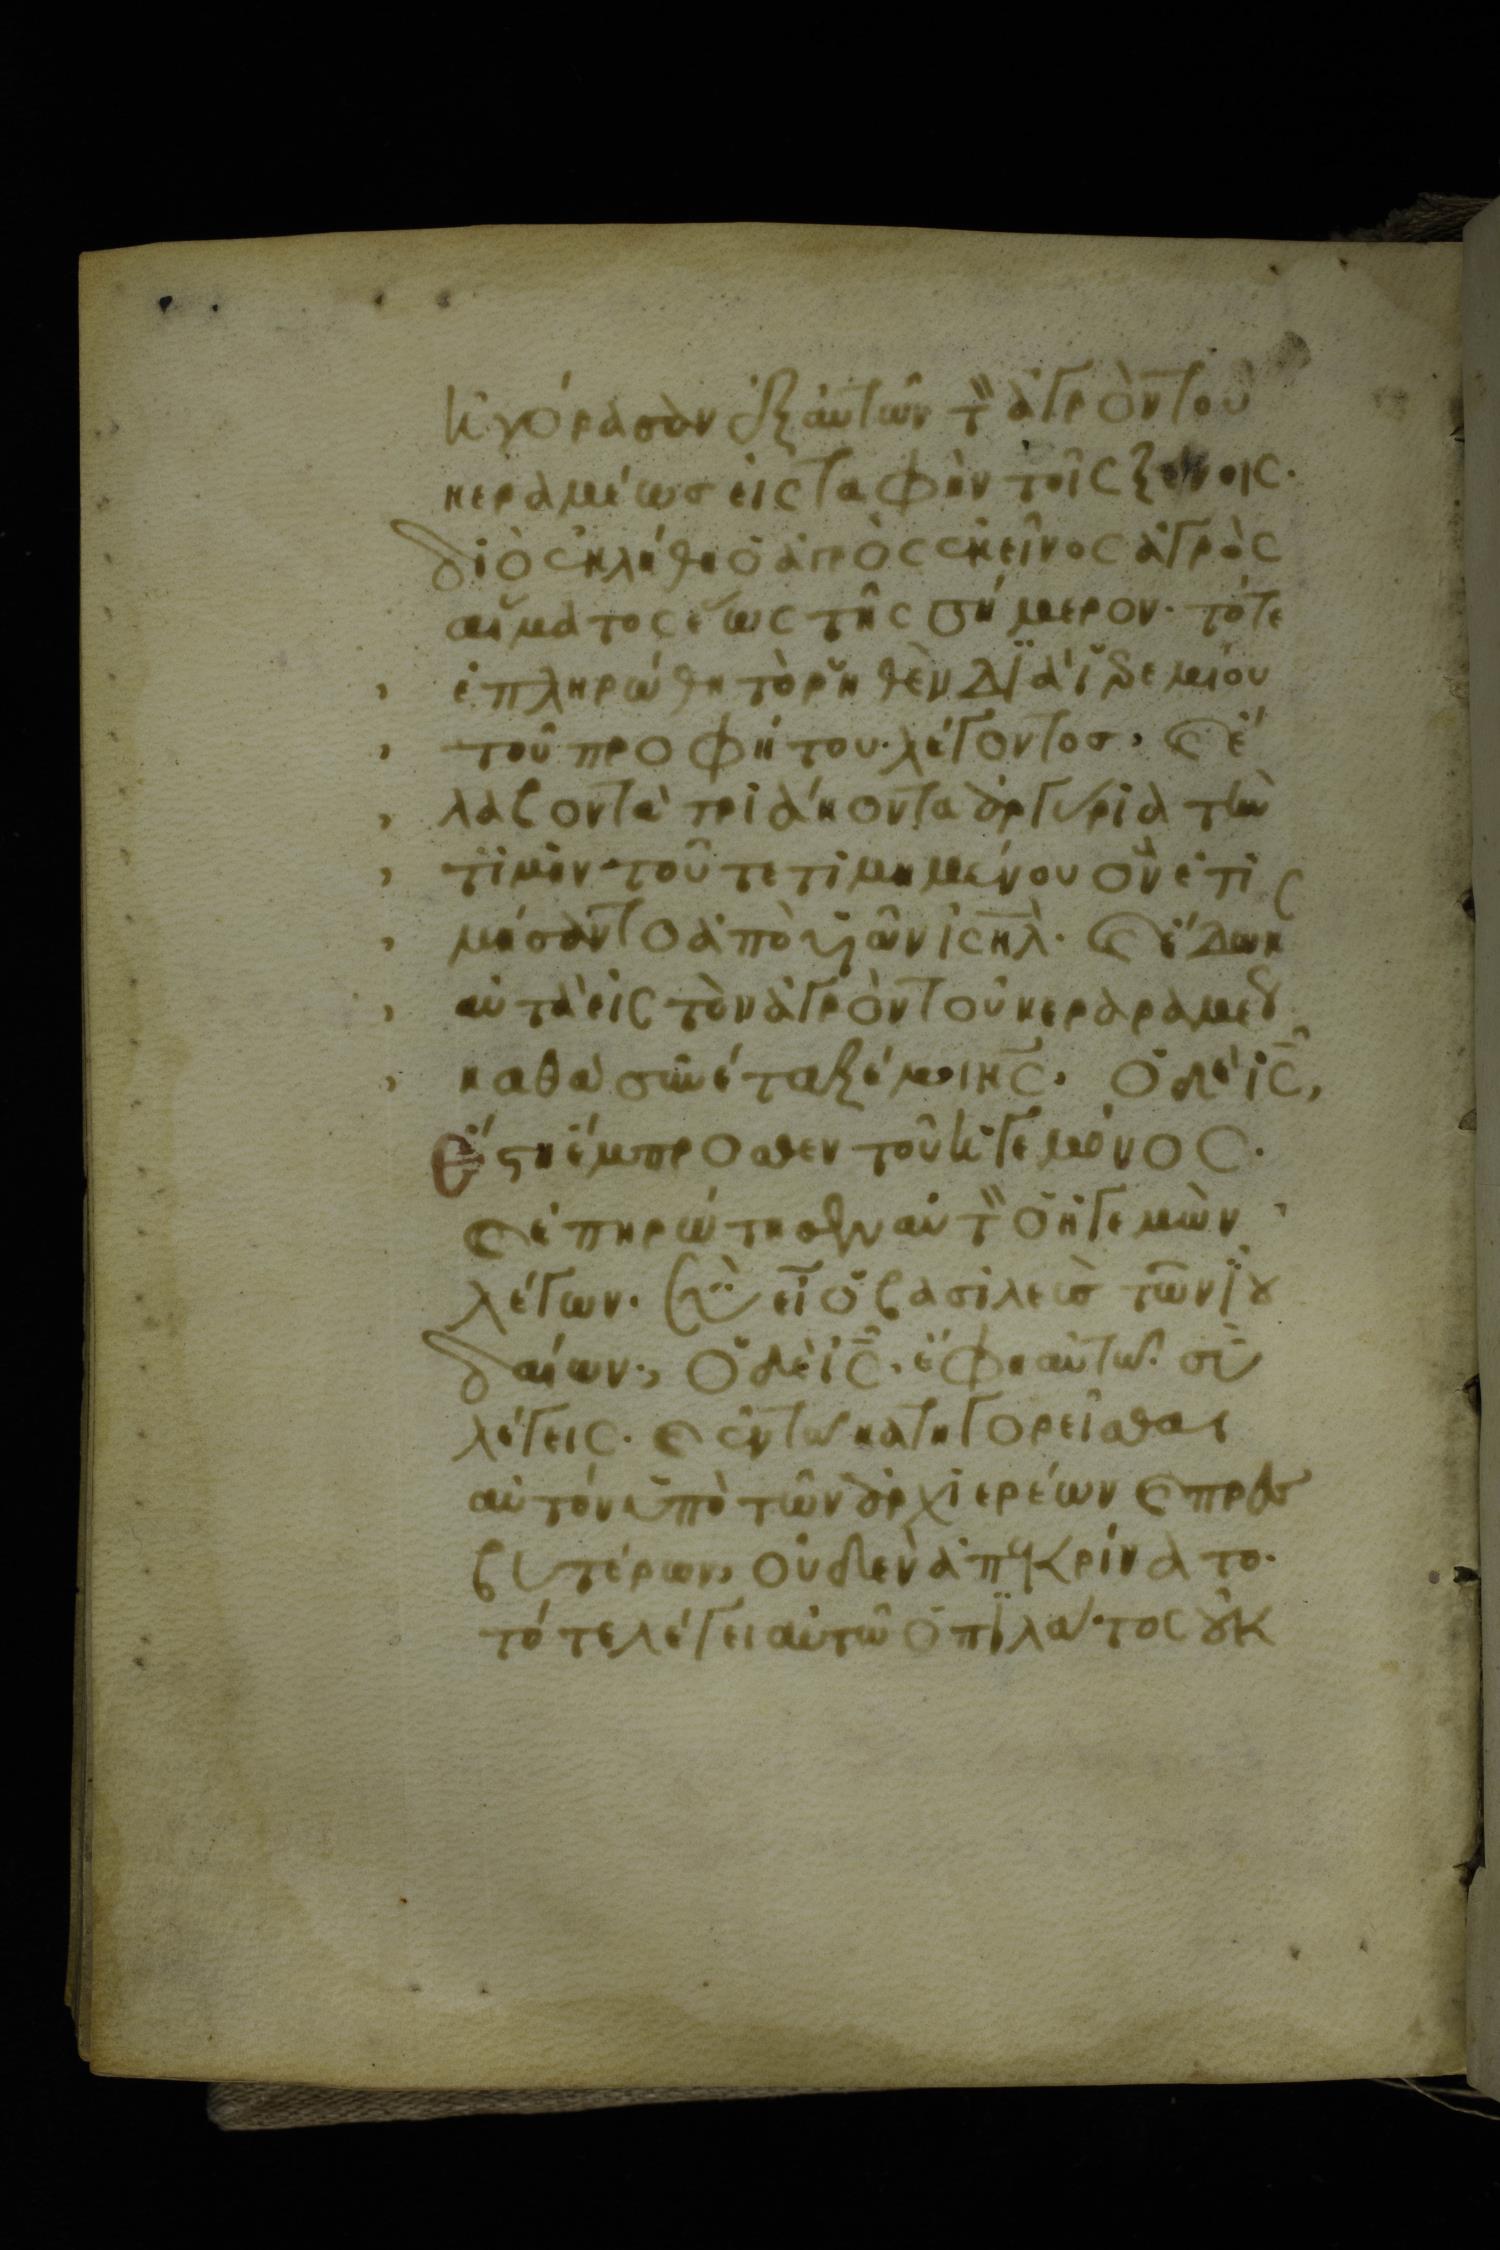 ἠγόρασαν ἐξ αὐτῶν τ̏ ἀγρὸν τοῦ
κεραμέωσ εἰς ταφὴν τοῖς ξένοις·
διὸ ἐκλήθη ὁ ἀγρὸς ἐκεῖνος ἀγρὸς
αἵματος ἕως τῆς σήμερον· τότε
ἐπληρώθη τὸ ῥηθὲν διὰ ἱερεμίου
τοῦ προφήτου λέγοντοσ, ϛ ἔ
λαβον τὰ τριάκοντα ἀργύρια τὴν
τιμὴν τοῦ τετιμημένου ὃν ἐτι
μήσαντο ἀπὸ υἱῶν ιηλ· ϛ ἔδωκ
αὐτὰ εἰς τὸν ἀγρὸν τοῦ κεραραμεȣ
καθὰ συνέταξέ μοι κς, ὁ δὲ ις,
ἔστη ἔμπροσθεν τοῦ ἡγεμόνος·
ϛ ἐπηρώτησεν αὐτ̏ ὁ ἡγεμὼν
λέγων· σὺ εἶ ὁ βασιλεὺσ τῶν ϊȣ
δαίων, ὁ δὲ ις, ἔφη αὐτῶ· σὺ
λέγεις· ϛ ἐν τῶ κατηγορεῖσθαι
αὐτὸν ὑπὸ τῶν ἀρχιερέων ϛ πρεσ
βυτέρων, οὐδὲν ἀπεκρίνατο·
τότε λέγει αὐτῶ ὁ πϊλάτος ȣκ